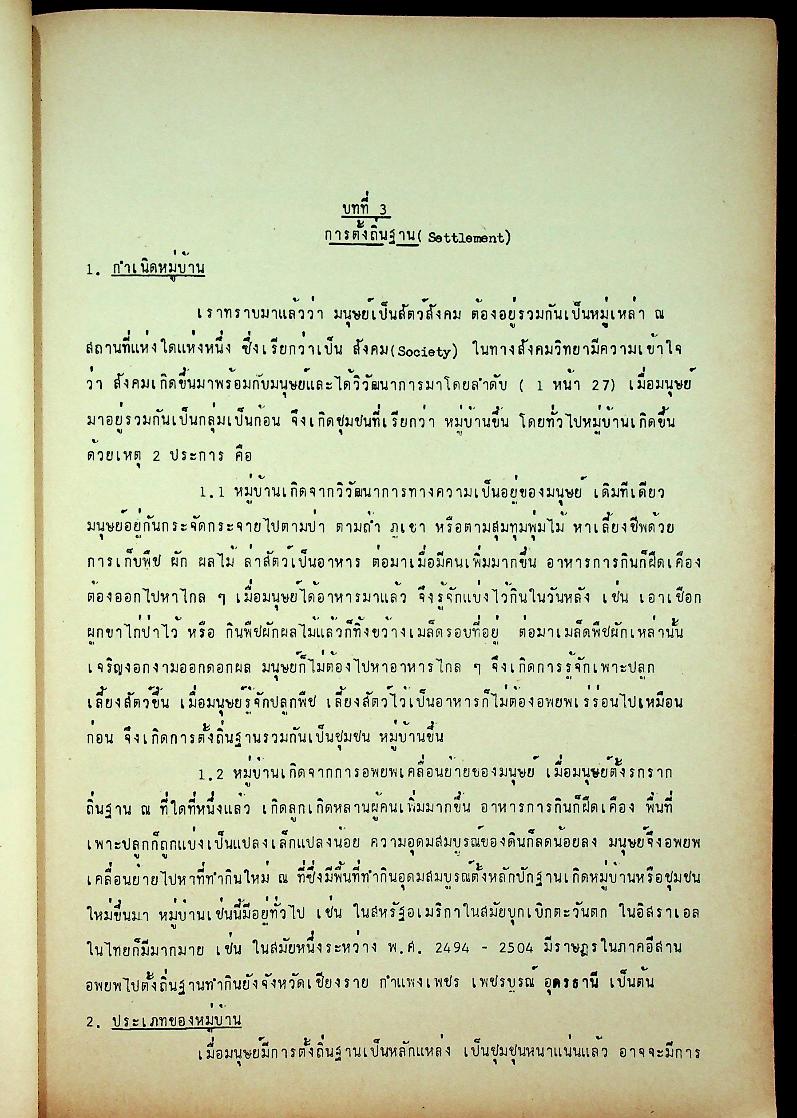 บทที่ 3
การตั้งถิ่นฐาน( Settlement)
1. กำเนิดหมู่บ้าน
เราทราบมาแล้วว่า มนุษย์เป็นสัตว์สังคม ต้องอยู่รวมกันเป็นหมู่เหล่า ณ
สถานที่แห่งใดแห่งหนึ่ง ซึ่งเรียกว่าเป็น สังคม(Society) ในทางสังคมวิทยามีความเข้าใจ
ว่า สังคมเกิดขึ้นมาพร้อมกับมนุษย์และได้วิวัฒนาการมาโดยลำดับ ( 1 หน้า 27) เมื่อมนุษย์
มาอยู่รวมกันเป็นกลุ่มเป็นก้อน จึงเกิดชุมชนที่เรียกว่า หมู่บ้านขึ้น โดยทั่วไปหมู่บ้านเกิดขึ้น
ด้วยเหตุ 2 ประการ คือ
1.1 หมู่บ้านเกิดจากวิวัฒนาการทางความเป็นอยู่ของมนุษย์ เดิมทีเดียว
มนุษย์อยู่กันกระจัดกระจายไปตามป่า ตามถ้ำ ภูเขา หรือตามสุมทุมพุ่มไม้ หาเลี้ยงชีพด้วย
การเก็บพืช ผัก ผลไม้ ล่าสัตว์เป็นอาหาร ต่อมาเมื่อมีคนเพิ่มมากขึ้น อาหารการกินก็ฝืดเคือง
ต้องออกไปหาไกล ๆ เมื่อมนุษย์ได้อาหารมาแล้ว จึงรู้จักแบ่งไว้กินในวันหลัง เช่น เอาเชือก
ผูกขาไก่ป่าไว้ หรือ กินพืชผักผลไม้แล้วก็ทิ้งขว้างเมล็ดรอบที่อยู่ ต่อมาเมล็ดพืชผักเหล่านั้น
เจริญงอกงามออกดอกผล มนุษย์ก็ไม่ต้องไปหาอาหารไกล ๆ จึงเกิดการรู้จักเพาะปลูก
เลี้ยงสัตว์ขึ้น เมื่อมนุษย์รู้จักปลูกพืช เลี้ยงสัตว์ไว้เป็นอาหารก็ไม่ต้องอพยพเร่ร่อนไปเหมือน
ก่อน จึงเกิดการตั้งถิ่นฐานรวมกันเป็นชุมชน หมู่บ้านขึ้น
1.2 หมู่บ้านเกิดจากการอพยพเคลื่อนย้ายของมนุษย์ เมื่อมนุษย์ตั้งรกราก
ถิ่นฐาน ณ ที่ใดที่หนึ่งแล้ว เกิดลูกเกิดหลานผู้คนเพิ่มมากขึ้น อาหารการกินก็ฝืดเคือง พื้นที่
เพาะปลูกก็ถูกแบ่งเป็นแปลงเล็กแปลงน้อย ความอุดมสมบูรณ์ของดินก็ลดน้อยลง มนุษย์จึงอพยพ
เคลื่อนย้ายไปหาที่ทำกินใหม่ ณ ที่ซึ่งมีพื้นที่ทำกินอุดมสมบูรณ์ตั้งหลักปักฐานเกิดหมู่บ้านหรือชุมชน
ใหม่ขึ้นมา หมู่บ้านเช่นนี้มีอยู่ทั่วไป เช่น ในสหรัฐอเมริกาในสมัยบุกเบิกตะวันตก ในอิสราเอล
ในไทยก็มีมากมาย เช่น ในสมัยหนึ่งระหว่าง พ.ศ. 2494 - 2504 มีราษฎรในภาคอีสาน
อพยพไปตั้งถิ่นฐานทำกินยังจังหวัดเชียงราย กำแพงเพชร เพชรบูรณ์ อุดรธานี เป็นต้น
2. ประเภทของหมู่บ้าน
เมื่อมนุษย์มีการตั้งถิ่นฐานเป็นหลักแหล่ง เป็นชุมชุนหนาแน่นแล้ว อาจจะมีการ